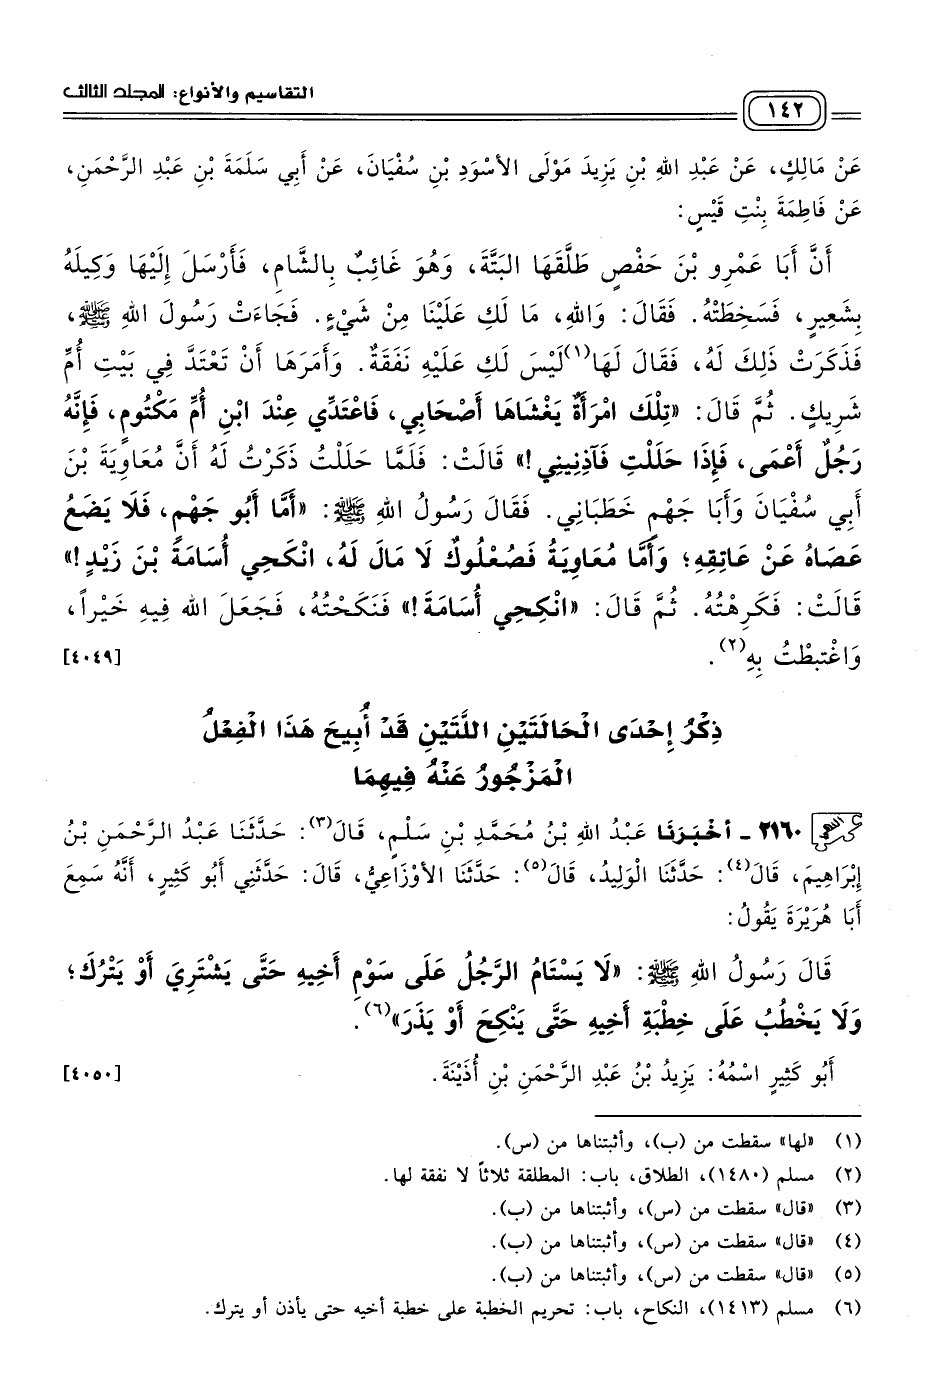 التقاسيم والأنواع: المجلد الثالث
١٤٢
عَنْ مَالِكٍ، عَنْ عَبْدِ اللهِ بْنِ يَزِيدَ مَوْلَى الأسْوَدِ بْنِ سُفْيَانَ، عَنْ أَبِي سَلَمَةَ بْنِ عَبْدِ الرَّحْمَنِ،
عَنْ فَاطِمَةَ بِنْتِ قَيْسٍ:
أَنَّ أَبَا عَمْرِو بْنَ حَفْصٍ طَلَّقَهَا البَتَّةَ، وَهُوَ غَائِبٌ بِالشَّامِ، فَأَرْسَلَ إِلَيْهَا وَكِيلَهُ
بِشَعِيرٍ، فَسَخِطَتْهُ. فَقَالَ: وَاللهِ، مَا لَكِ عَلَيْنَا مِنْ شَيْءٍ. فَجَاءَتْ رَسُولَ اللهِ ﷺ،
فَذَكَرَتْ ذَلِكَ لَهُ، فَقَالَ لَهَا(١) لَيْسَ لَكِ عَلَيْهِ نَفَقَةٌ. وَأَمَرَهَا أَنْ تَعْتَدَّ فِي بَيْتِ أُمِّ
شَرِيكٍ. ثُمَّ قَالَ: «تِلْكَ امْرَأَةٌ يَغْشَاهَا أَصْحَابِي، فَاعْتَدِّي عِنْدَ ابْنِ أُمِّ مَكْتُومٍ، فَإِنَّهُ
رَجُلٌ أَعْمَى، فَإِذَا حَلَلْتِ فَآذِنِينِي!» قَالَتْ: فَلَمَّا حَلَلْتُ ذَكَرْتُ لَهُ أَنَّ مُعَاوِيَةَ بْنَ
أَبِي سُفْيَانَ وَأَبَا جَهْمٍ خَطَبَانِي. فَقَالَ رَسُولُ اللهِ ﷺ: «أَمَّا أَبُو جَهْمٍ، فَلَا يَضَعُ
عَصَاهُ عَنْ عَاتِقِهِ؛ وَأَمَّا مُعَاوِيَةُ فَصُعْلُوكٌ لَا مَالَ لَهُ، انْكَحِي أُسَامَةَ بْنَ زَيْدٍ!»
قَالَتْ: فَكَرِهْتُهُ. ثُمَّ قَالَ: «انْكِحِي أُسَامَةَ!» فَنَكَحْتُهُ، فَجَعَلَ اللهُ فِيهِ خَيْراً،
وَاغْتبطْتُ بِهِ(٢). [٤٠٤٩]
ذِكْرُ إِحْدَى الْحَالَتَيْنِ اللَّتَيْنِ قَدْ أُبِيحَ هَذَا الْفِعْلُ
الْمَزْجُورُ عَنْهُ فِيهِمَا
٢١٦٠ - أَخْبَرَنَا عَبْدُ اللهِ بْنُ مُحَمَّدِ بْنِ سَلْمٍ، قَالَ(٣): حَدَّثَنَا عَبْدُ الرَّحْمَنِ بْنُ
إِبْرَاهِيمَ، قَالَ(٤): حَدَّثَنَا الْوَلِيدُ، قَالَ(٥): حَدَّثَنَا الأَوْزَاعِيُّ، قَالَ: حَدَّثَنِي أَبُو كَثِيرٍ، أَنَّهُ سَمِعَ
أَبَا هُرَيْرَةَ يَقُولُ:
قَالَ رَسُولُ اللهِ ﷺ: «لَا يَسْتَامُ الرَّجُلُ عَلَى سَوْمِ أَخِيهِ حَتَّى يَشْتَرِيَ أَوْ يَتْرُكَ؛
وَلَا يَخْطُبُ عَلَى خِطْبَةِ أَخِيهِ حَتَّى يَنْكِحَ أَوْ يَذَرَ»(٦).
أَبُو كَثِيرٍ اسْمُهُ: يَزِيدُ بْنُ عَبْدِ الرَّحْمَنِ بْنِ أُذَيْنَةَ. [٤٠٥٠]
(١) «لها» سقطت من (ب)، وأثبتناها من (س).
(٢) مسلم (١٤٨٠)، الطلاق، باب: المطلقة ثلاثاً لا نفقة لها.
(٣) «قال» سقطت من (س)، وأثبتناها من (ب).
(٤) «قال» سقطت من (س)، وأثبتناها من (ب).
(٥) «قال» سقطت من (س)، وأثبتناها من (ب).
(٦) مسلم (١٤١٣)، النكاح، باب: تحريم الخطبة على خطبة أخيه حتى يأذن أو يترك.